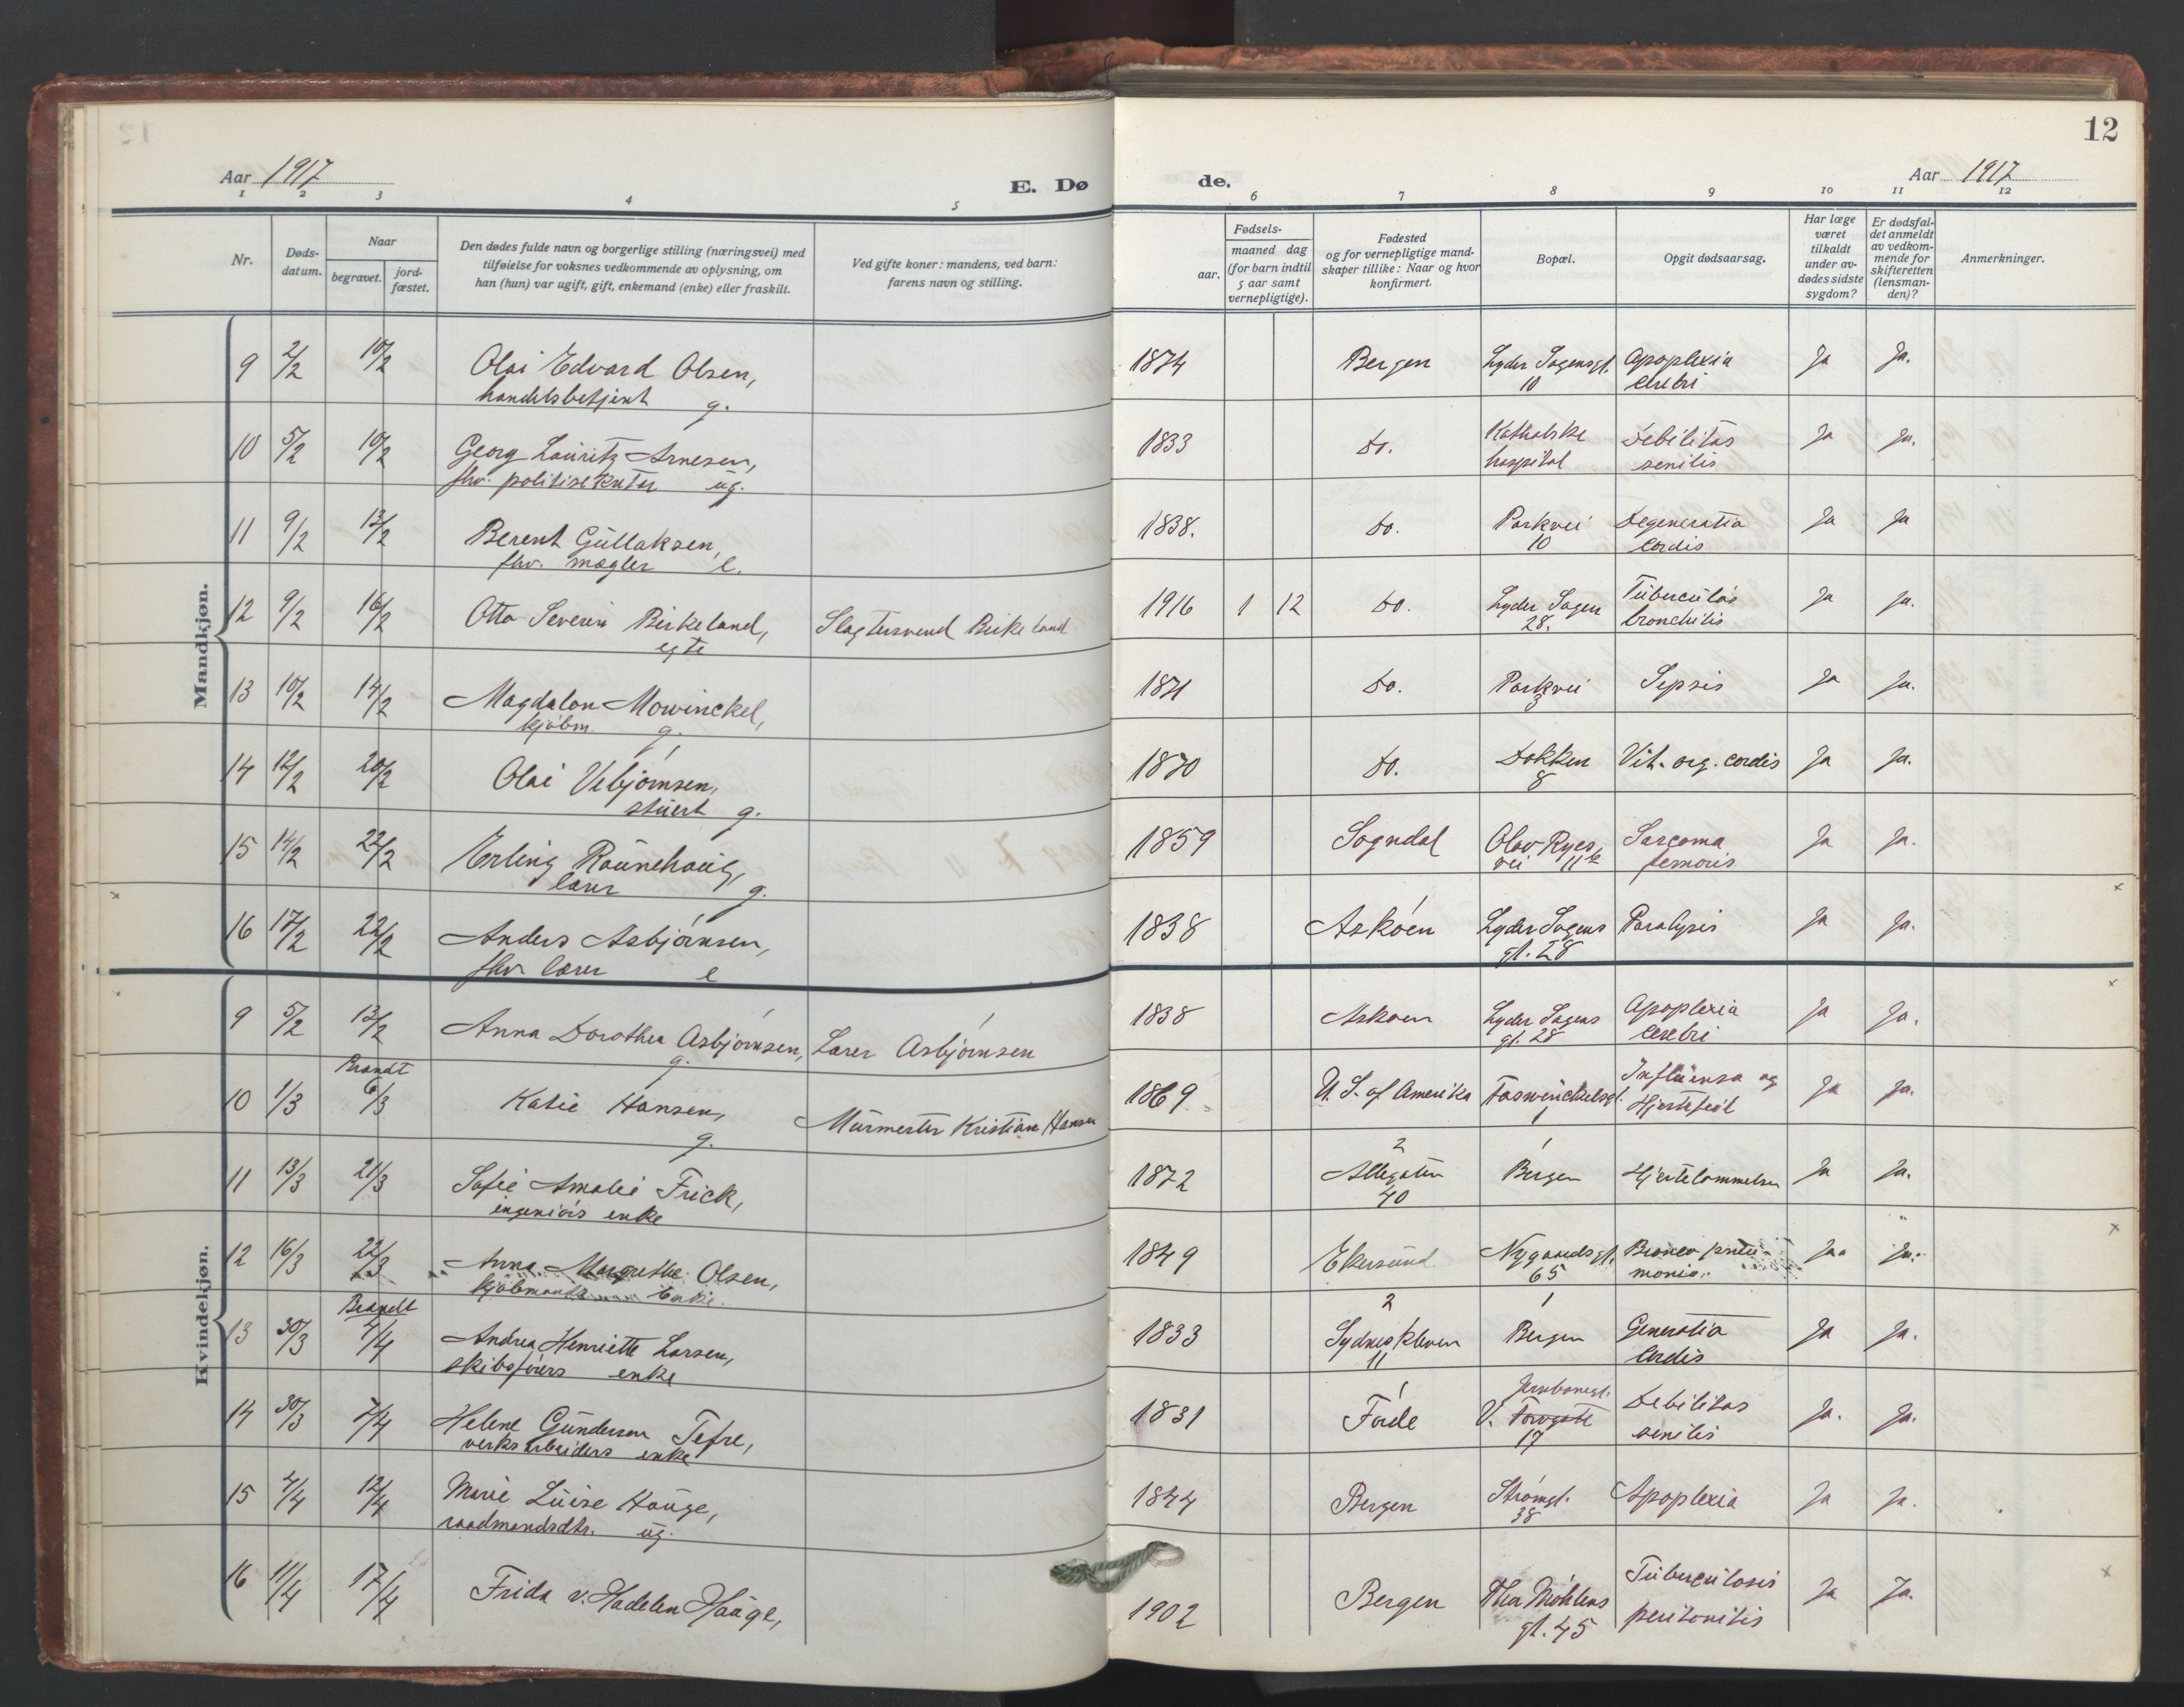 12
Aar 1917
E. Dø
de.
Aar 1917
1 2 3 4 5 6 7 8 9 10 11 12
Nr.
Døds-
datum.
Naar
begravet.
jord-
fæstet.
Den dødes fulde navn og borgerlige stilling (næringsvei) med
tilføielse for voksnes vedkommende av oplysning, om
han (hun) var ugift, gift, enkemand (enke) eller fraskilt.
Ved gifte koner: mandens, ved barn:
farens navn og stilling.
Fødsels-
aar.
maaned dag
(for barn indtil
5 aar samt
vernepligtige).
Fødested
og for vernepligtige mand-
skaper tillike: Naar og hvor
konfirmert.
Bopæl.
Opgit dødsaarsag.
Har læge
været
tilkaldt
under av-
dødes sidste
sygdom?
Er dødsfal-
det anmeldt
av vedkom-
mende for
skifteretten
(lensman-
den)?
Anmerkninger.
Mandkjøn.
9 2/2 10/2 Olai Edvard Olsen, 1874 Bergen Lyder Sagensgt. Apoplexia Ja Ja.
handelsbetjent g. 10 cerebri
10 5/2 10/2 Georg Lauritz Arnesen, 1833 do. Katholske Debilitas Ja Ja.
fhv. politisekretær ug. hospital senilis
11 9/2 13/2 Berent Gullaksen, 1838. do. Parkvei Degeneratio Ja Ja
fhv. mægler e. 10 cordis
12 9/2 16/2 Otto Severin Birkeland, Slagtersvend Birkeland 1916 1 12 do. Lyder Sagen Tuberculos Ja Ja.
egte 28. bronchitis
13 10/2 14/2 Magdalon Mowinckel, 1871 do. Parkvei Sepsis Ja Ja.
kjøbm. g. 3
14 12/2 20/2 Olai Vebjørnsen, 1870 do. Dokken Vit. org. cordis Ja Ja.
stuert g. 8
15 14/2 22/2 Erling Raunehaug, 1859 Sogndal Olav Ryes Sarcoma Ja Ja.
lærer g. vei 11 b femoris
16 17/2 22/2 Anders Asbjørnsen, 1838 Askøen Lyder Sagens Paralysis Ja Ja.
fhv. lærer e gt. 28
Kvindekjøn.
9 5/2 13/2 Anna Dorothea Asbjørnsen, Lærer Asbjørnsen 1838 Askøen Lyder Sagens Apoplexia Ja Ja.
g. gt. 28 cerebri
Brændt
10 1/3 6/3 Katie Hansen, Murmester Kristian Hansen 1869 U. S. of Amerika Foswinckelsgt. Influensa og Ja Ja.
g. 1 Hjertefeil
2 1
11 13/3 21/3 Sofie Amalie Frick, 1872 Allégaten Bergen Hjertelammelse Ja Ja.
ingeniørs enke 40
12 16/3 22/3 Anna Margrethe Olsen, 1849 Ekersund Nygaardsgt. Bronco pneu- Ja. Ja.
kjøbmands enke. 65 monia.
Brændt 2 1
13 30/3 4/4 Andrea Henriette Larsen, 1833 Sydneskleven Bergen Generatio Ja Ja.
skibsførers enke 11 Cordis
Jernbanegt.
14 30/3 7/4 Helene Gundersen Tefre, 1831 Førde V. Torvgate Debilitas Ja. Ja.
verksarbeiders enke 17 senilis
15 4/4 12/4 Marie Luise Hauge, 1844 Bergen Strømgt. Apoplexia Ja Ja.
raadmandsdtr. ug. 38
16 11/4 17/4 Frida v. Hadelen Hauge, 1902 Bergen Thor Möhlens Tuberculosis Ja Ja.
gt. 45 peritonitis